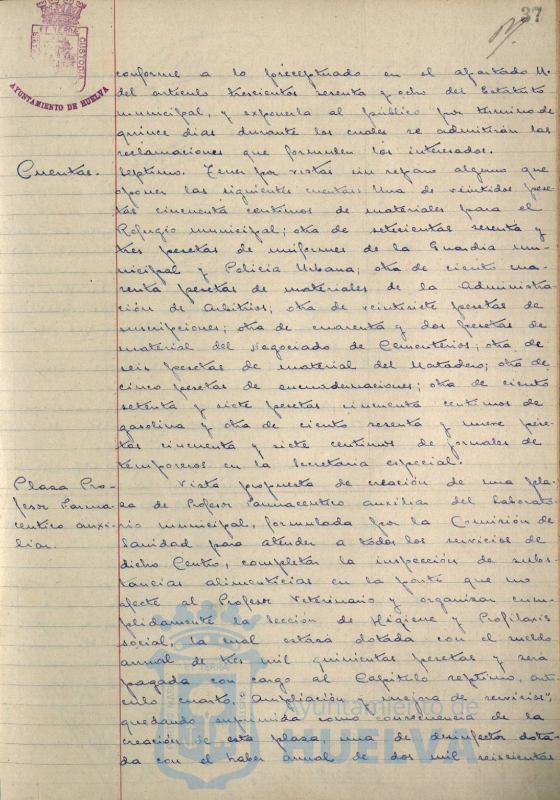 37
AYUNTAMIENTO DE HUELVA
conforme a lo preceptuado en el apartado
del artículo trescientos sesenta y ocho del Estatuto
municipal, y exponerla al público por término de
quince dias durante los cuales se admitirán las
reclamaciones que formulen los interesados.
Cuentas.- Septimo. Tener por vistas sin reparo alguno que
oponer las siguientes cuentas: Una de veintidos pese-
tas cincuenta centimos de materiales para el
Refugio municipal; otra de setecientas sesenta y
tres pesetas de uniformes de la Guardia mu-
nicipal y Policia Urbana; otra de ciento cua-
renta pesetas de materiales de la Administra-
ción de Arbitrios; otra de veintisiete pesetas de
suscripciones; otra de cuarenta y dos pesetas de
material del Negociado de Cementerios; otra de
seis pesetas de material del Matadero; otra de
cinco pesetas de encuadernaciones; otra de ciento
setenta y siete pesetas cincuenta centimos de
gasolina y otra de ciento sesenta y nueve pese-
tas cincuenta y siete centimos de jornales de
temporeros en la Secretaria especial.
Plaza Pro- Vista propuesta de creación de una pla-
fesor Farma- za de Profesor Farmaceutico auxiliar del laborato-
ceutico auxi- rio municipal, formulada por la Comisión de
liar. Sanidad para atender a todos los servicios de
dicho Centro, completar la inspección de subs-
tancias alimenticias en la parte que no
afecte al Profesor Veterinario y organizar cum-
plidamente la Sección de Higiene y Profilaxis
social, la cual estará dotada con el sueldo
anual de tres mil quinientas pesetas y será
pagada con cargo al Capitulo septimo, arti-
culo cuarto, "Ampliación y mejora de servicios",
quedando suprimida como consecuencia de la
creación de esta plaza una de desinfector dota-
da con el haber anual de dos mil seiscientas
Ayuntamiento de
HUELVA